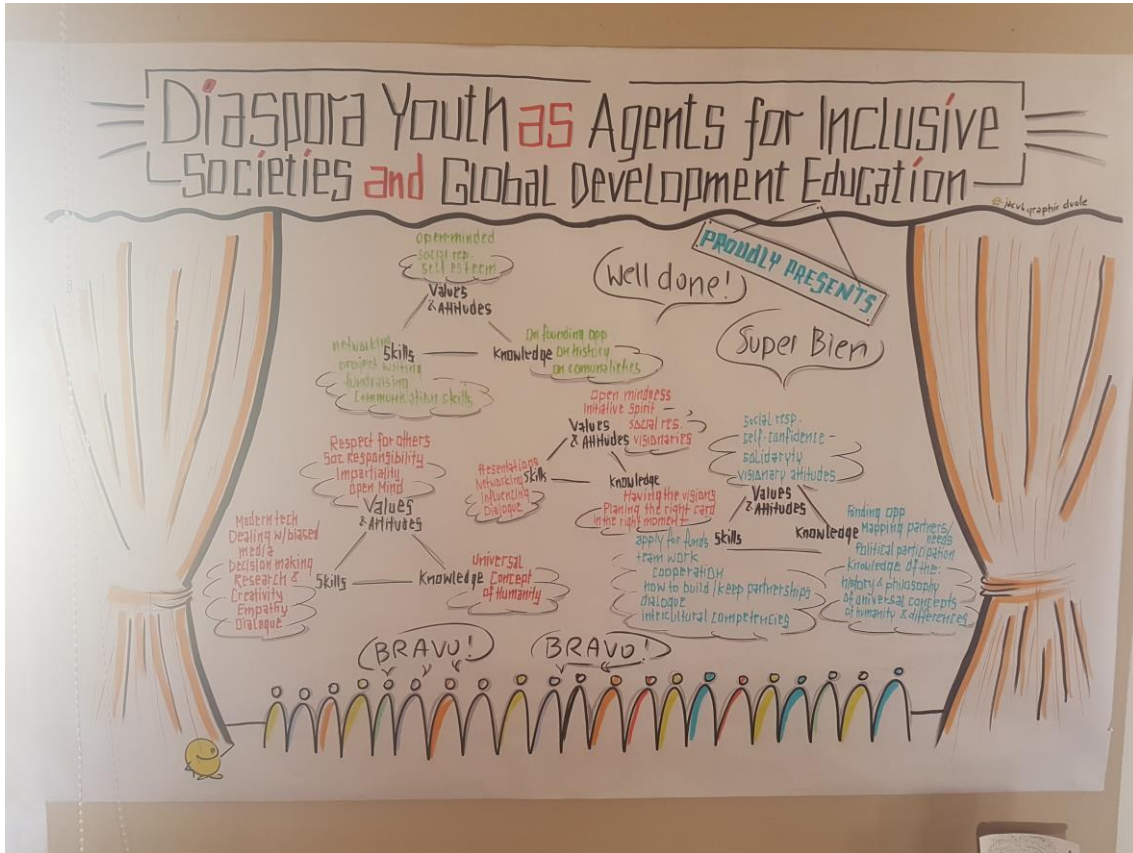 Diaspora Youth as Agents for Inclusive
Societies and Global Development Education
PROUDLY PRESENTS
open-minded
social rep.
self esteem
Values
& Attitudes
networking
project writing
fundraising
communication skills
Skills
Knowledge
on founding opp
on history
on comunalities
Well done!
Super Bien
Open mindness
Initiative Spirit
social res.
visionaries
Values
& Attitudes
Presentations
Networking
Influencing
Dialogue
Skills
Knowledge
Having the visions
Planing the right card
in the right moment
Respect for others
Soc Responsibility
Impartiality
Open Mind
Values
& Attitudes
Modern tech
Dealing w/biased
media
Decision making
Research &
Creativity
Empathy
Dialogue
Skills
Knowledge
Universal
Concept
of Humanity
social resp.
self-confidence
solidaryty
visionary attitudes
Values
& Attitudes
apply for funds
team work
cooperation
how to build/keep partnerships
dialogue
intercultural competencies
Skills
Knowledge
Finding opp
Mapping partners/
needs
Political participation
Knowledge of the:
history & philosophy
of universal concepts
of humanity & differences
BRAVO!
BRAVO!